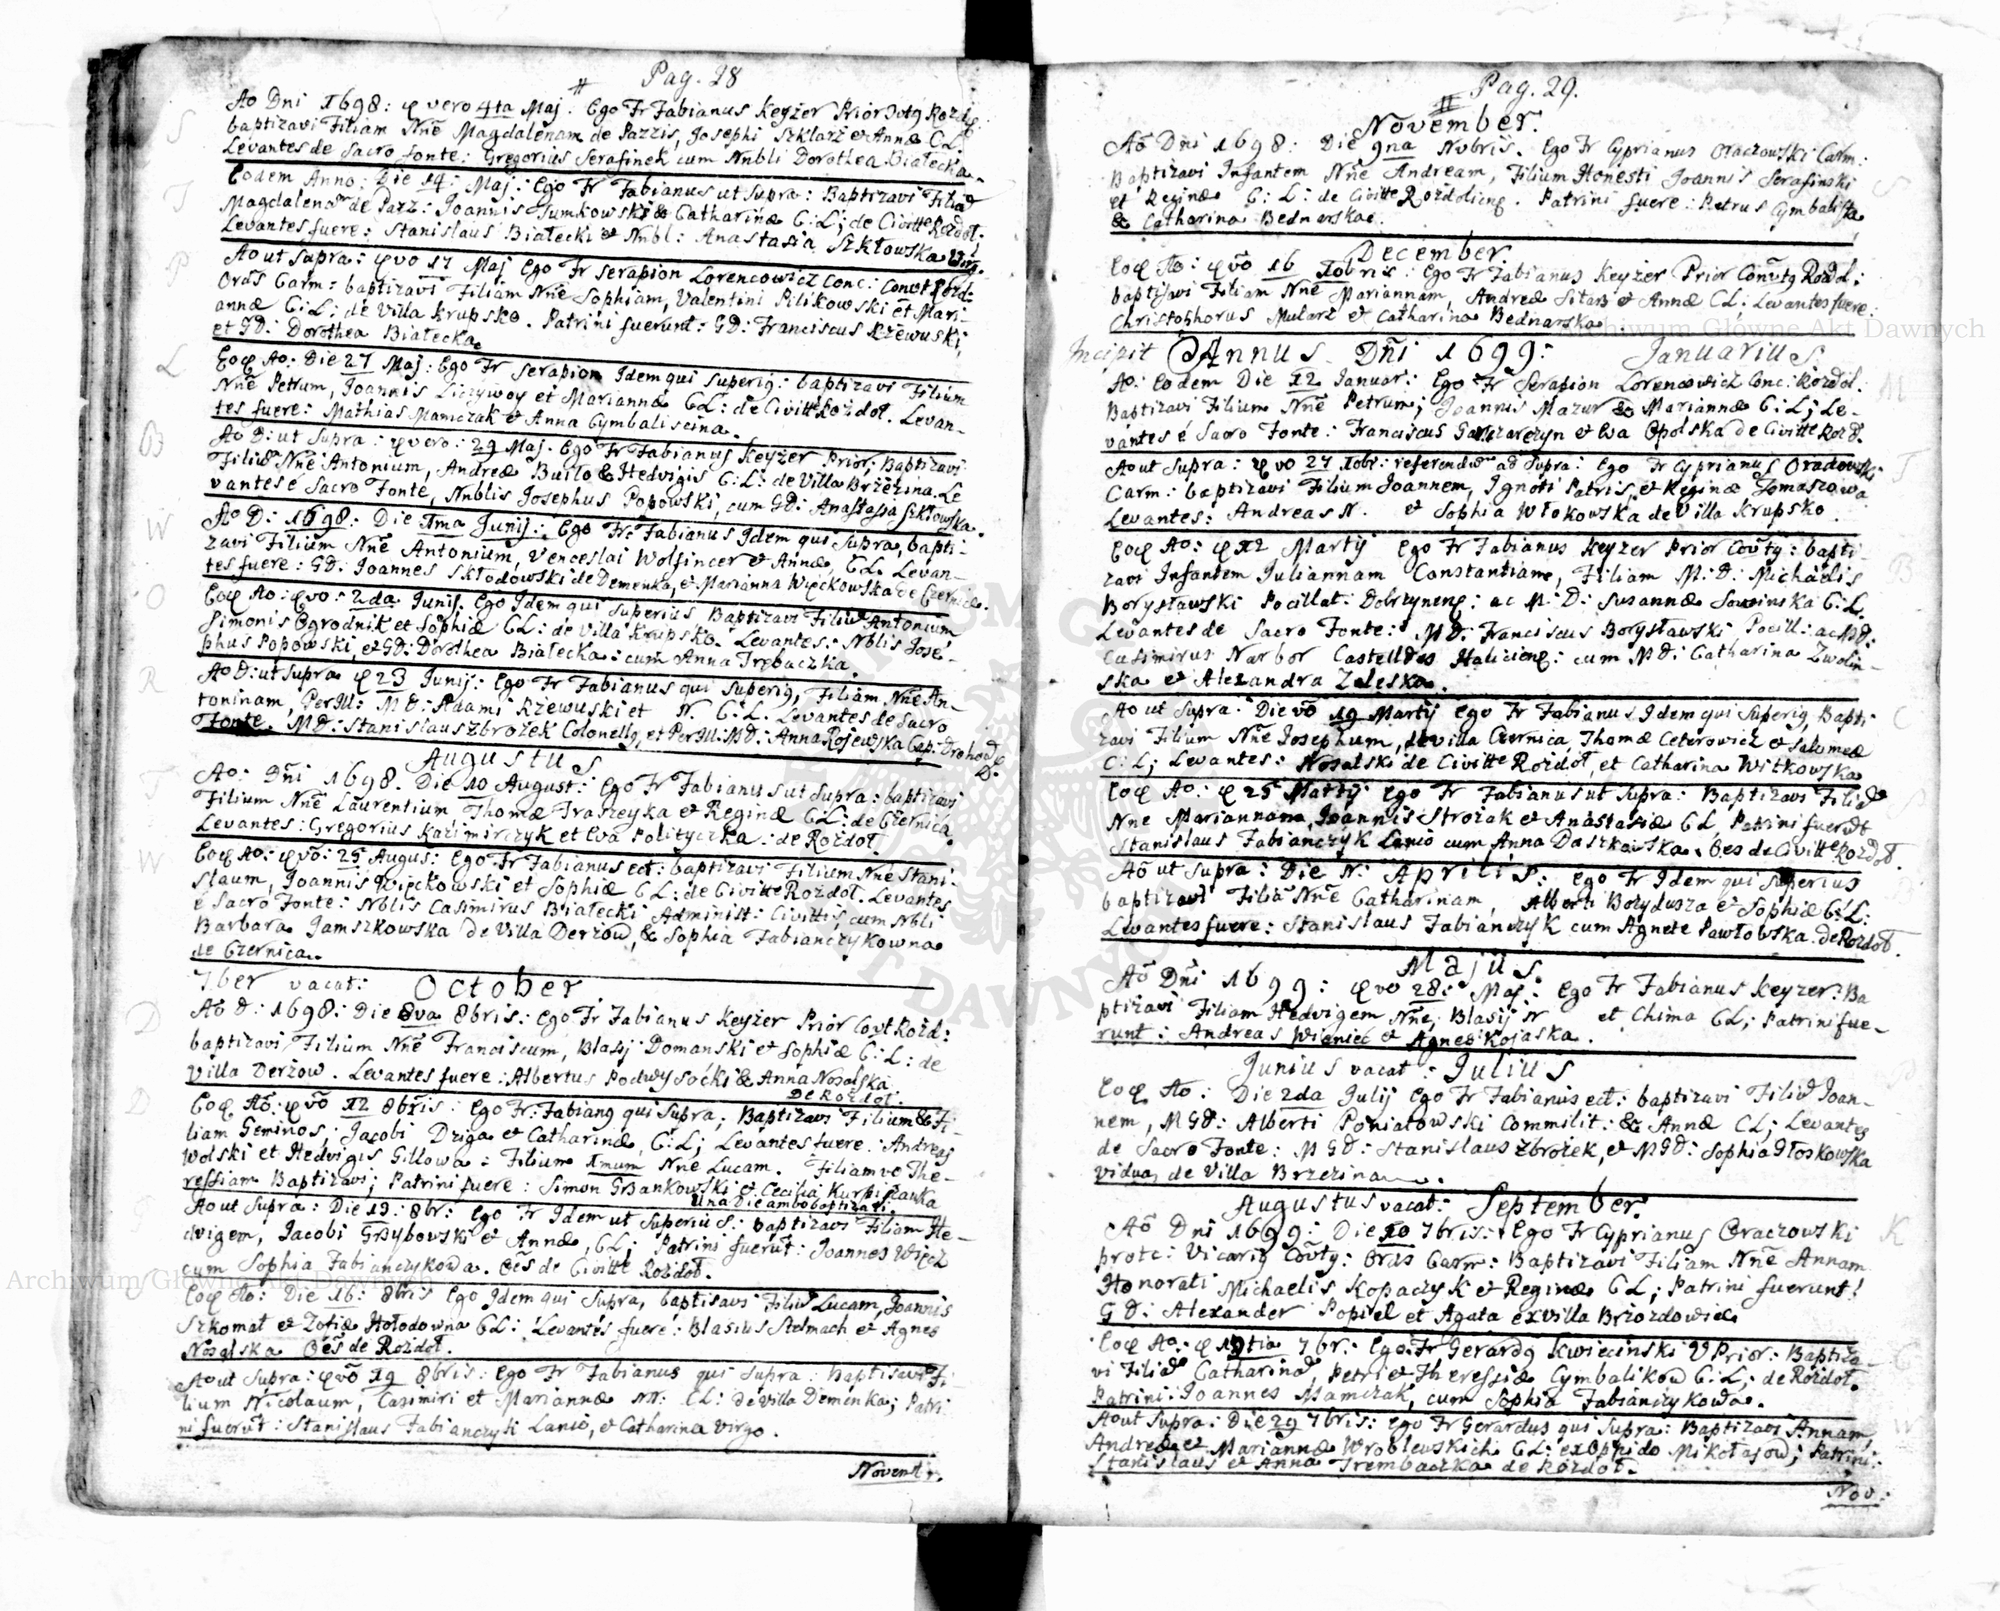 Pag. 28
Ao Dni 1698: q vero 4ta Maj: Ego Fr Fabianus Keyzer Prior
baptizavi Filiam Nñe Magdalenam de Pazzis, Josephi Szklarz et Annæ C.L.
Levantes de Sacro fonte: Gregorius Serafinek cum Nnbli Dorothea Białecka.
Eodem Anno: Die 14: Maj: Ego Fr Fabianus ut Supra: Baptizavi Filiã
Magdalenam de Pazz: Joannis Jumkowski & Catharinæ C:L; de Civitte Rozdoł.
Levantes fuere: Stanislaus Białecki et Nnbl: Anastasia Szkłowska
Ao ut Supra: qvo 17 Maj Ego Fr Serapion Lorencowicz Conc: Convt Rozd:
Ords Carm: baptizavi Filiam Nñe Sophiam, Valentini Pilikowski et Mari-
annæ C:L; de Villa Krupsko. Patrini fuerunt: GD: Franciscus Rzewuski,
et GD: Dorothea Białecka.
Eoq Ao: Die 27 Maj: Ego Fr Serapion Idem qui Superig: baptizavi Filium
Nñe Petrum, Joannis Liczywoy et Mariannæ CL: de Civitt Rozdoł. Levan-
tes fuere: Mathias Mamczak & Anna Cymbaliscina.
Ao D: ut Supra: qvero: 29 Maj. Ego Fr Fabianus Keyzer Prior; Baptizavi
Filiũ Nñe Antonium, Andreæ Builo & Hedvigis C:L: de Villa Brzezina. Le
vantes é Sacro Fonte, Nnblis Josephus Popowski, cum GD: Anastasia Szkłowska.
Ao D: 1698: Die 1ma Junij: Ego Fr: Fabianus Idem qui Supra, bapti-
zavi Filium Nñe Antonium, Venceslai Wolfincer et Annæ, C.L. Levan-
tes fuere: GD: Joannes Skłodowski de Demenka, et Marianna Więckowska de Czernica.
Eoq Ao: qvo: 2da Junij. Ego Idem qui Superius, Baptizavi Filiũ Antonium
Simonis Ogrodnik et Sophiæ CL: de Villa Krupsko. Levantes: Nblis Jose-
phus Popowski, et GD: Dorothea Białecka: cum Anna Trębaczka.
Ao D: ut Supra q 23 Junij: Ego Fr Fabianus qui Superig, Filiam Nñe An-
toninam, Per Ill: M: D: Adami Rzewuski et N. C:L. Levantes de Sacro
Fonte. MD: Stanislaus Zbrożek Colonellg, et Per Ill: MD: Anna Rojewska Cap: Drohod
Augustus
Ao: Dñi 1698. Die 10 August: Ego Fr Fabianus ut Supra: baptizavi
Filium Nñe Laurentium, Thomæ Traszeyka et Reginæ C.L: de Czernica,
Levantes: Gregorius Kazimirczyk et Eva Polityczka: de Rozdoł.
Eoq Ao: qvõ: 25 Augus: Ego Fr Fabianus ect: baptizavi Filium Nñe Stani-
slaum, Joannis Więckowski et Sophiæ CL: de Civitte Rozdoł. Levantes
é Sacro Fonte: Nblis Casimirus Białecki Administ: Civittis, cum Nbli
Barbara Jamszkowska de Villa Derzow, & Sophia Fabianczykowna
de Czernica.
7ber vacat: October
Ao D: 1698: Die 8va 8bris: Ego Fr Fabianus Keyzer Prior Covt Rozd:
baptizavi Filium Nñe Franciscum, Blasij Domanski et Sophiæ C:L: de
Villa Derzow. Levantes fuere: Albertus Podwysocki & Anna Nosalska
de Rozdoł.
Eoq Ao: qvõ 12 8bris: Ego Fr: Fabiang qui Supra; Baptizavi Filium & Fi-
liam Geminos; Jacobi Dziga et Catharinæ, C:L; Levantes fuere: Andreas
Wolski et Hedvigis Gillowa: Filium 1mum Nñe Lucam. Filiam vo The-
ressiam Baptizavi; Patrini fuere: Simon Grbankowski et Cecilia Kurpiszanka
Una Die ambo baptizati.
Ao ut Supra: Die 13: 8br: Ego Fr Idem ut Superius: baptizavi Filiam He-
dvigem, Jacobi Grzybowski et Annæ, CL; Patrini fuerũt: Joannes Więcz
cum Sophia Fabianczykowa. Oẽs de Civitte Rozdoł.
Eoq Ao: Die 16: 8bris Ego Idem qui Supra, baptisavi Filiũ Lucam, Joannis
Szkomat et Zofiæ Hołodowna CL: Levantes fuere: Blasius Stelmach et Agnes
Nosalska Oẽs de Rozdoł.
Ao ut Supra: qvõ 19 8bris: Ego Fr Fabianus qui Supra: baptisavi Fi-
lium Nicolaum, Casimiri et Mariannæ CL: de Villa Demenka; Patri
ni fuerũt: Stanislaus Fabianczyk Lanio, et Catharina Virgo.
Novembr.
Pag. 29.
November.
Ao Dni 1698: Die 9na Nobris. Ego Fr Cyprianus Oraczowski Carm:
Baptizavi Infantem Nñe Andream, Filium Honesti Joannis Serafinski
et Reginæ C: L: de Civitte Rozdolieng. Patrini fuere: Petrus Cymbalista
& Catharina Bednarska.
December.
Eoq Ao: qvõ 16 Xobris: Ego Fr Fabianus Keyzer Prior Convtg Rozdl:
baptisavi Filiam Nñe Mariannam, Andreæ Sitarz et Annæ CL; Levantes fuere:
Christophorus Mularz et Catharina Bednarska
Incipit Annus Dñi 1699: Januarius.
Ao: Eodem Die 12 Januar: Ego Fr Serapion Lorencowicz Conc: Rozdol:
Baptizavi Filium Nñe Petrum; Joannis Mazur & Mariannæ C:L; Le-
vantes é Sacro Fonte: Franciscus Garczarczyn et Eva Opolska de Civitte Rozd.
Ao ut Supra: qvo 27 Xobr: referendũ ad Supra: Ego Fr Cyprianus Oradowski
Carm: baptizavi Filium Joannem, Ignoti Patris, et Reginæ Tomaszowa
Levantes: Andreas N. et Sophia Włokowska de Villa Krupsko.
Eoq Ao: q 12 Martij Ego Fr Fabianus Keyzer Prior Covtg: bapti-
zavi Infantem Juliannam Constantiam, Filiam M: D: Michaelis
Borysławski Pocillat: Dobrzyneng: ac M: D: Susannæ Sowinska C:L.
Levantes de Sacro Fonte: MD: Franciscus Borysławski Pocill: ac MD:
Casimirus Narbor Castellides Halicieng: cum MD: Catharina Zwolin-
ska et Alexandra Zaleska.
Ao ut Supra: Die vo 19 Martij Ego Fr Fabianus Idem qui Superig, Bapti-
zavi Filium Nñe Josephum, de villa Czernica, Thomæ Ceterowicz & Salomeæ
C:L; Levantes: Nosalski de Civitte Rozdoł, et Catharina Witkowska
Eoq Ao: q 25 Martij Ego Fr Fabianus ut Supra: Baptizavi Filiã
Nñe Mariannam, Joannis Strozak et Anastasiæ CL, Patrini fuerũt
Stanislaus Fabianczyk Lanio cum Anna Daszkawska. Oes de Civitte Rozdoł.
Ao ut Supra: Die N: Aprilis: Ego Fr Idem qui Superius
baptizavi Filiã Nñe Catharinam, Alberti Bozydusza et Sophiæ C:L:
Levantes fuere: Stanislaus Fabianczyk cum Agnete Pawłowska de Rozdoł.
Majus.
Ao Dñi 1699: qvo 28: Maj: Ego Fr Fabianus Keyzer: Ba
ptizavi Filiam Hedvigem Nñe, Blasij N et Chima CL; Patrini fue-
runt: Andreas Wieniec & Agnes Kojaska.
Junius vacat: Julius
Eoq Ao: Die 2da Julij Ego Fr Fabianus ect: baptizavi Filiũ Joan-
nem, MGD: Alberti Poniatowski Commilit: & Annæ CL; Levantes
de Sacro Fonte: MGD: Stanislaus Zbrożek, et MGD: Sophia Głoskowska
vidua, de Villa Brzezina.
Augustus vacat: September.
Ao Dni 1699: Die 10 7bris: Ego Fr Cyprianus Oraczowski
protc: Vicarig Covtg: Ords Carm: Baptizavi Filiam Nñe Annam
Honorati Michaelis Kopaczyk et Reginæ CL; Patrini fuerunt!
GD: Alexander Popiel et Agata ex villa Brzozdowiec
Eoq Ao: q 19tia 7br: Ego Fr Gerardg Kwiecinski VPrior: Baptiza-
vi Filiã Catharinã, Petri et Theressiæ Cymbalikow C:L; de Rozdoł.
Patrini: Joannes Mamczak, cum Sophia Fabianczykowa.
Ao ut Supra: Die 29 7bris: Ego Fr Gerardus qui Supra: Baptizavi Annam,
Andreæ et Mariannæ Wroblewskich CL: ex Oppido Mikołajow; Patrini:
Stanislaus et Anna Trembaczka de Rozdoł.
Nov:
Archiwum Główne Akt Dawnych
Archiwum Główne Akt Dawnych